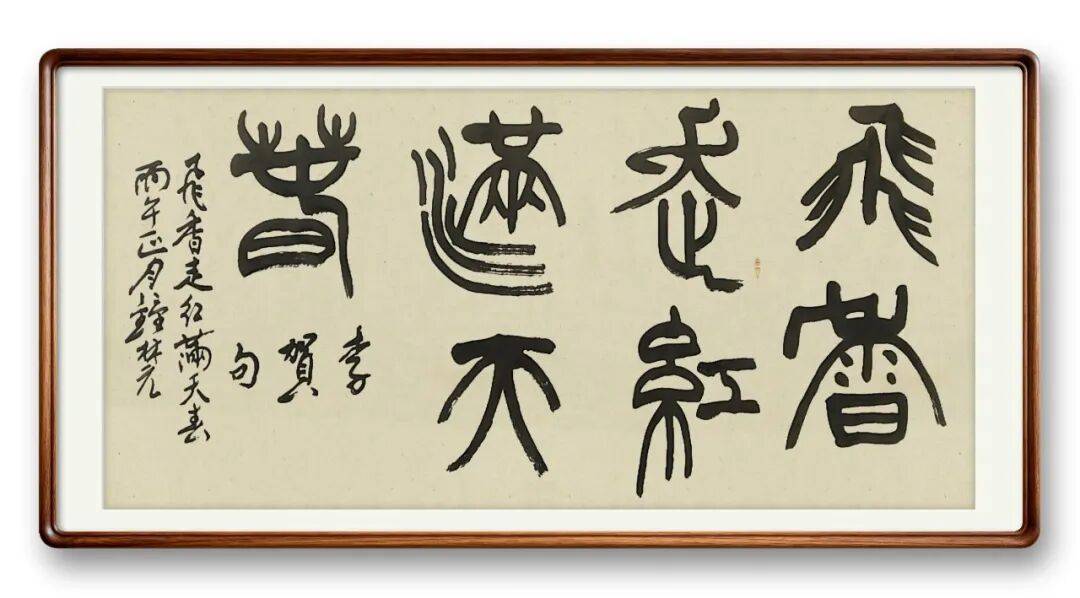 飛香
走紅
滿天
春
李賀句
飛香走紅滿天春
丙午正月鐘林元